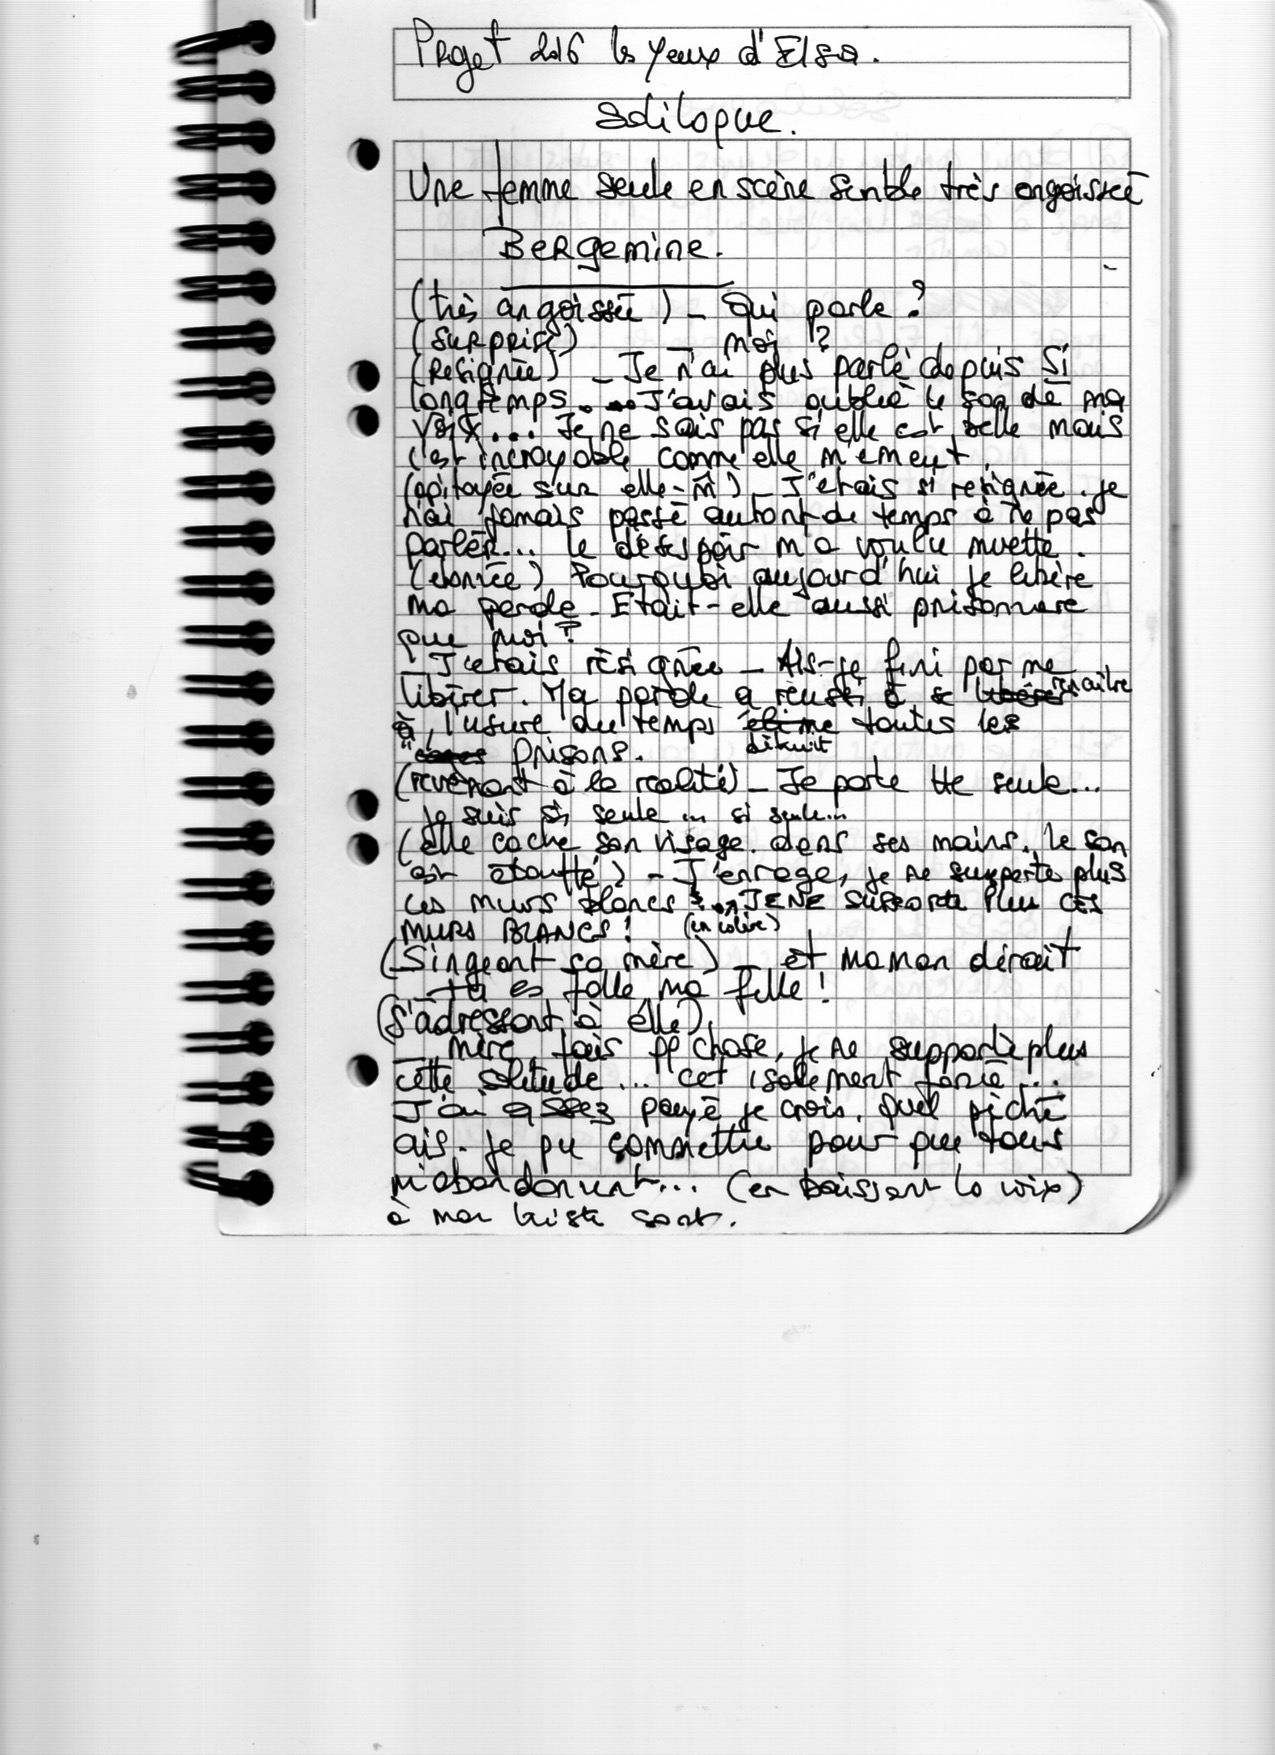 Projet 2016 les yeux d'Elsa.
Soliloque.
Une femme seule en scène semble très angoissée
Bergemine.
(très angoissée) - Qui parle ?
(surprise) - moi ?
(Resignée) - Je n'ai plus parlé depuis si
longtemps... J'avais oublié le son de ma
voix... Je ne sais pas si elle est belle mais
c'est incroyable comme elle m'émeut.
(apitoyée sur elle-m̂) - J'étais si resignée. je
n'ai jamais passé autant de temps à ne pas
parler... le désespoir m'a voulu muette.
(etonnée) Pourquoi aujourd'hui je libère
ma parole - Etait-elle aussi prisonnière
que moi ?
- J'etais résignée - Ais-je fini par me
libérer. Ma parole a réussi à se renaître
à, l'usure du temps détruit toutes les
prisons.
(revenant à la realité) - Je parle tte seule...
je suis si seule... si seule...
(elle cache son visage dans ses mains. le son
est étouffé) - J'enrage, je ne supporte plus
ces murs blancs !... JE NE SUPPORTE PLUS CES
MURS BLANCS ! (en colère)
(Singeant sa mère) - et maman dirait
- tu es folle ma fille !
(S'adressant à elle)
- mère, fais qq chose, je ne supporte plus
cette solitude... cet isolement forcé...
J'ai assez payé je crois. Quel péché
ais-je pu commettre pour que tous
m'abandonnent... (en baissant la voix)
à mon triste sort.